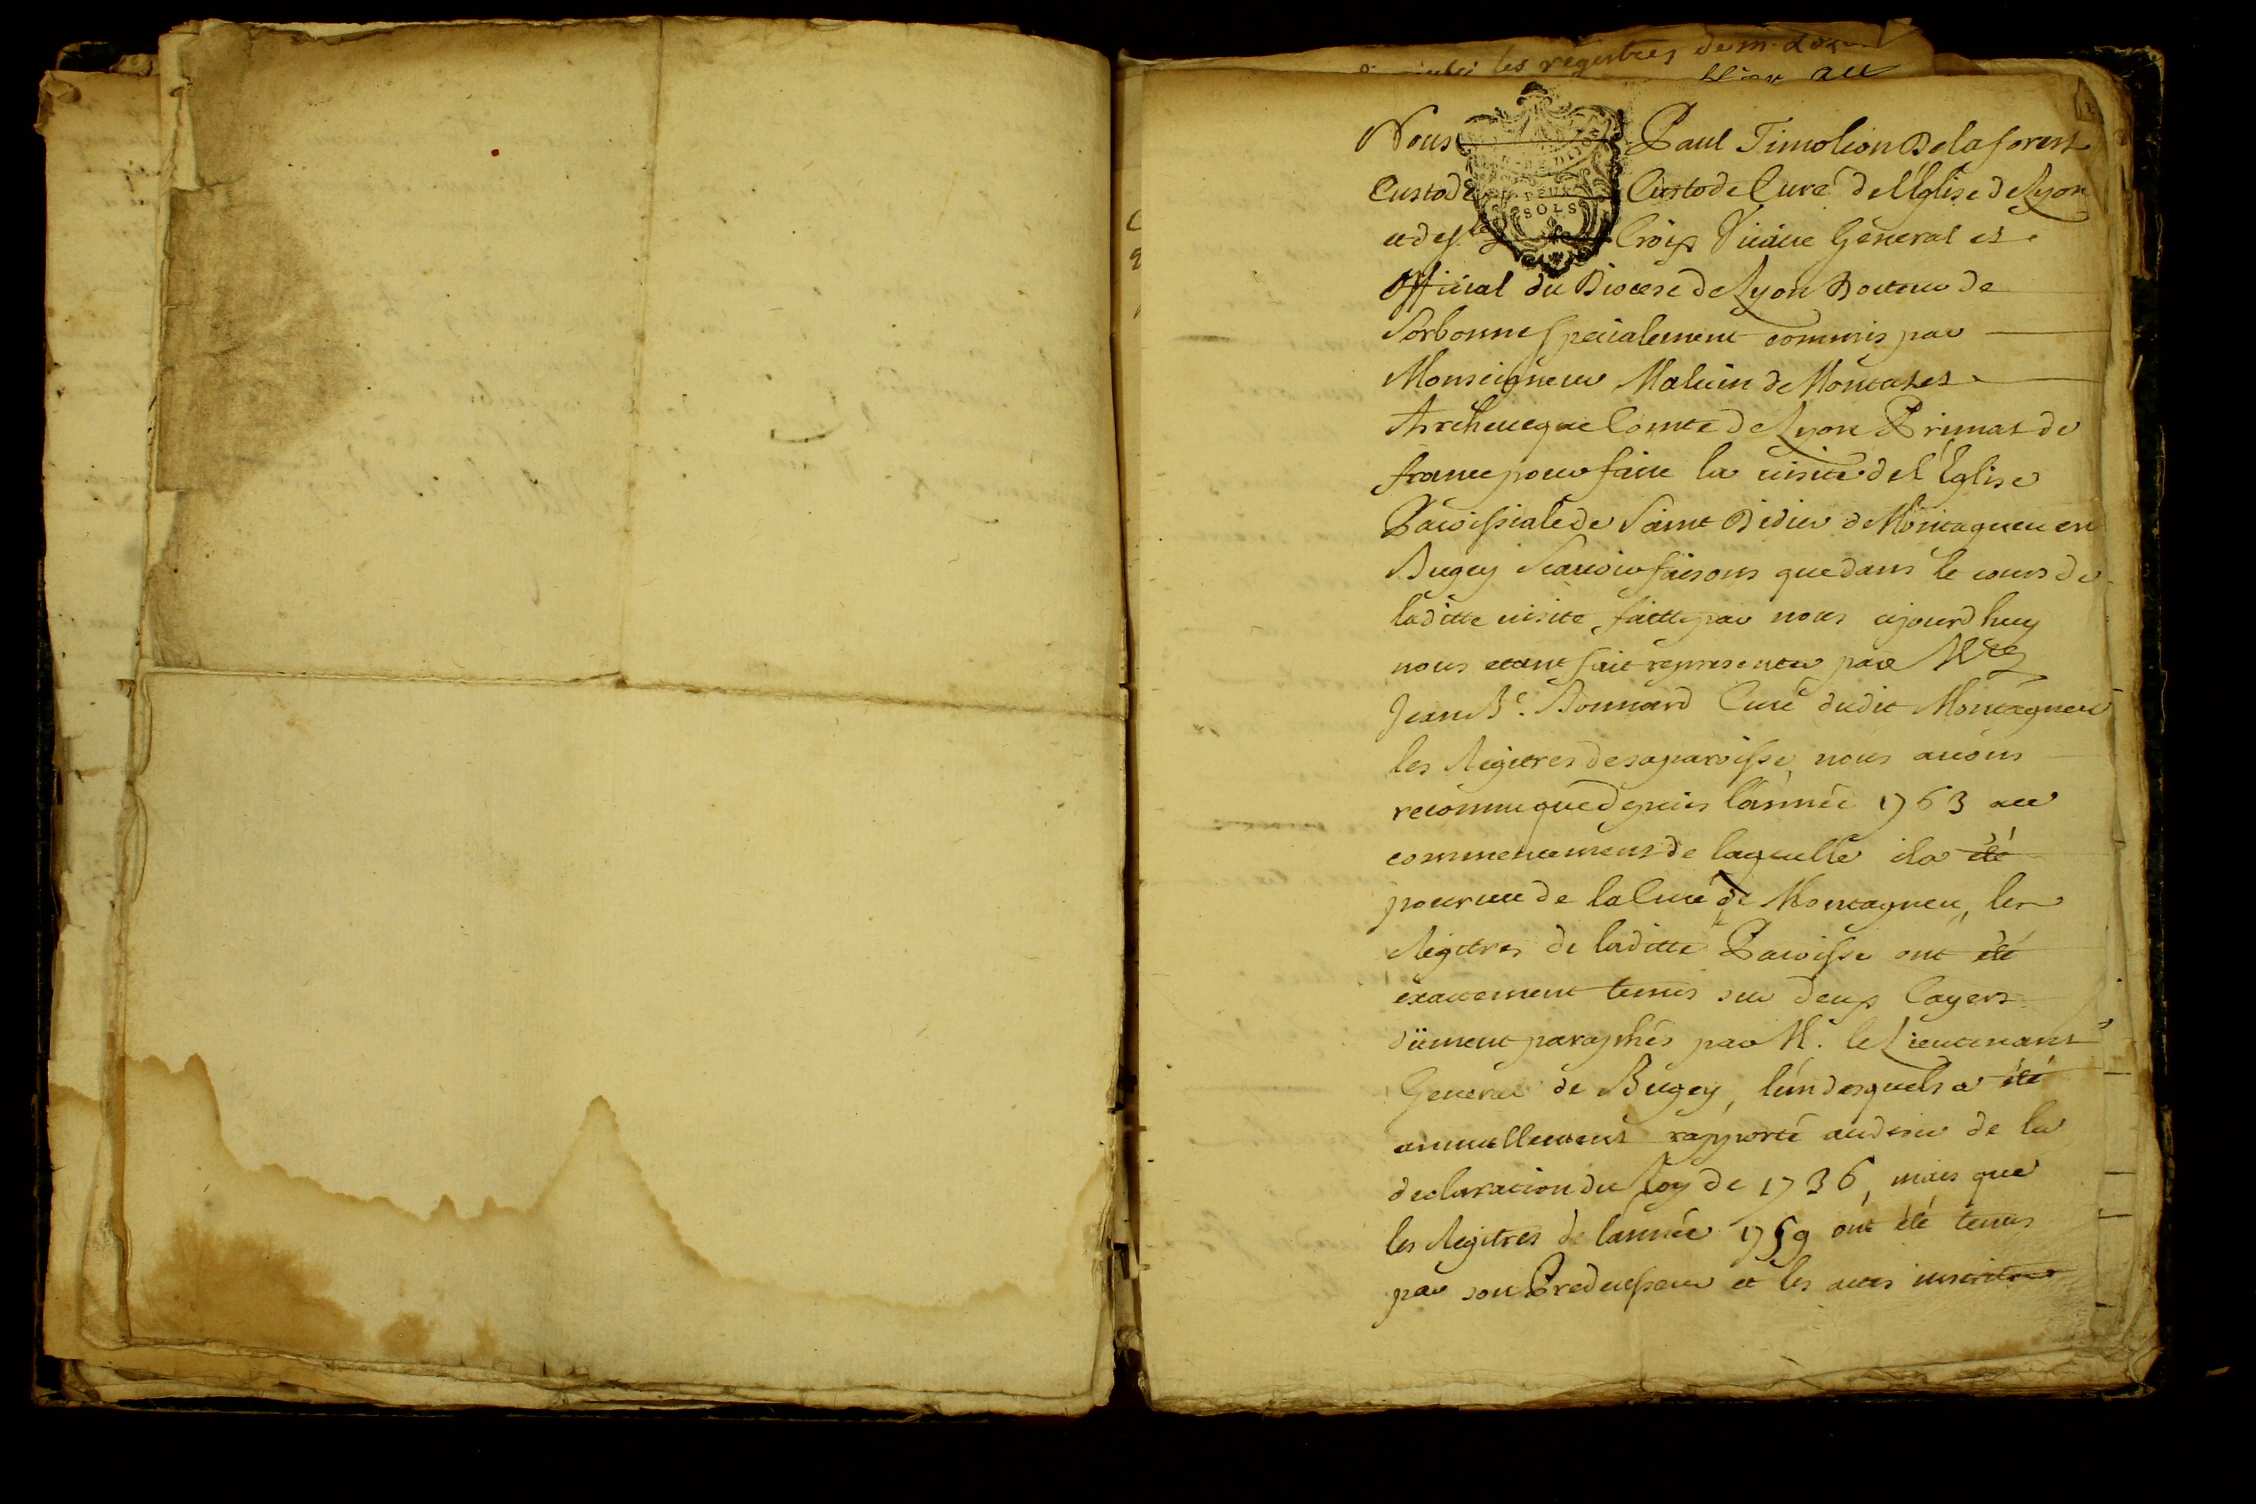 les registres de m.
au
Nous Paul Timoleon Delaforest
Custode Custode Curé de l'Eglise de Lyon
et de Ste Croix Vicaire General et
Official du Diocese de Lyon Docteur de
Sorbonne specialement commis par
Monseigneur Malvin de Montazet
Archeveque Comte de Lyon Primat de
france pour faire la visite de l'Eglise
Paroissiale de Saint Didier de Montagneu en
Bugey Scavoir faisons que dans le cours de
laditte visite faitte par nous ajourd huy
nous etant fait representer par Mre
Jean Bte. Bonnard Curé dudit Montagneu
les Regitres de sa paroisse, nous avons
reconnu que depuis l'année 1763 au
commencement de laquelle il a été
pourvu de la Cure de Montagneu, les
Regitres de laditte Paroisse ont été
exactement tenus sur deux Cayers
düment paraphés par M. le Lieutenant
General de Bugey, l'un desquels a été
annuellement rapporté au desir de la
declaration du Roy de 1736, mais que
les Regitres de l'année 1759 ont été tenus
par son Predecesseur et les actes inscrits
DEUX
SOLS